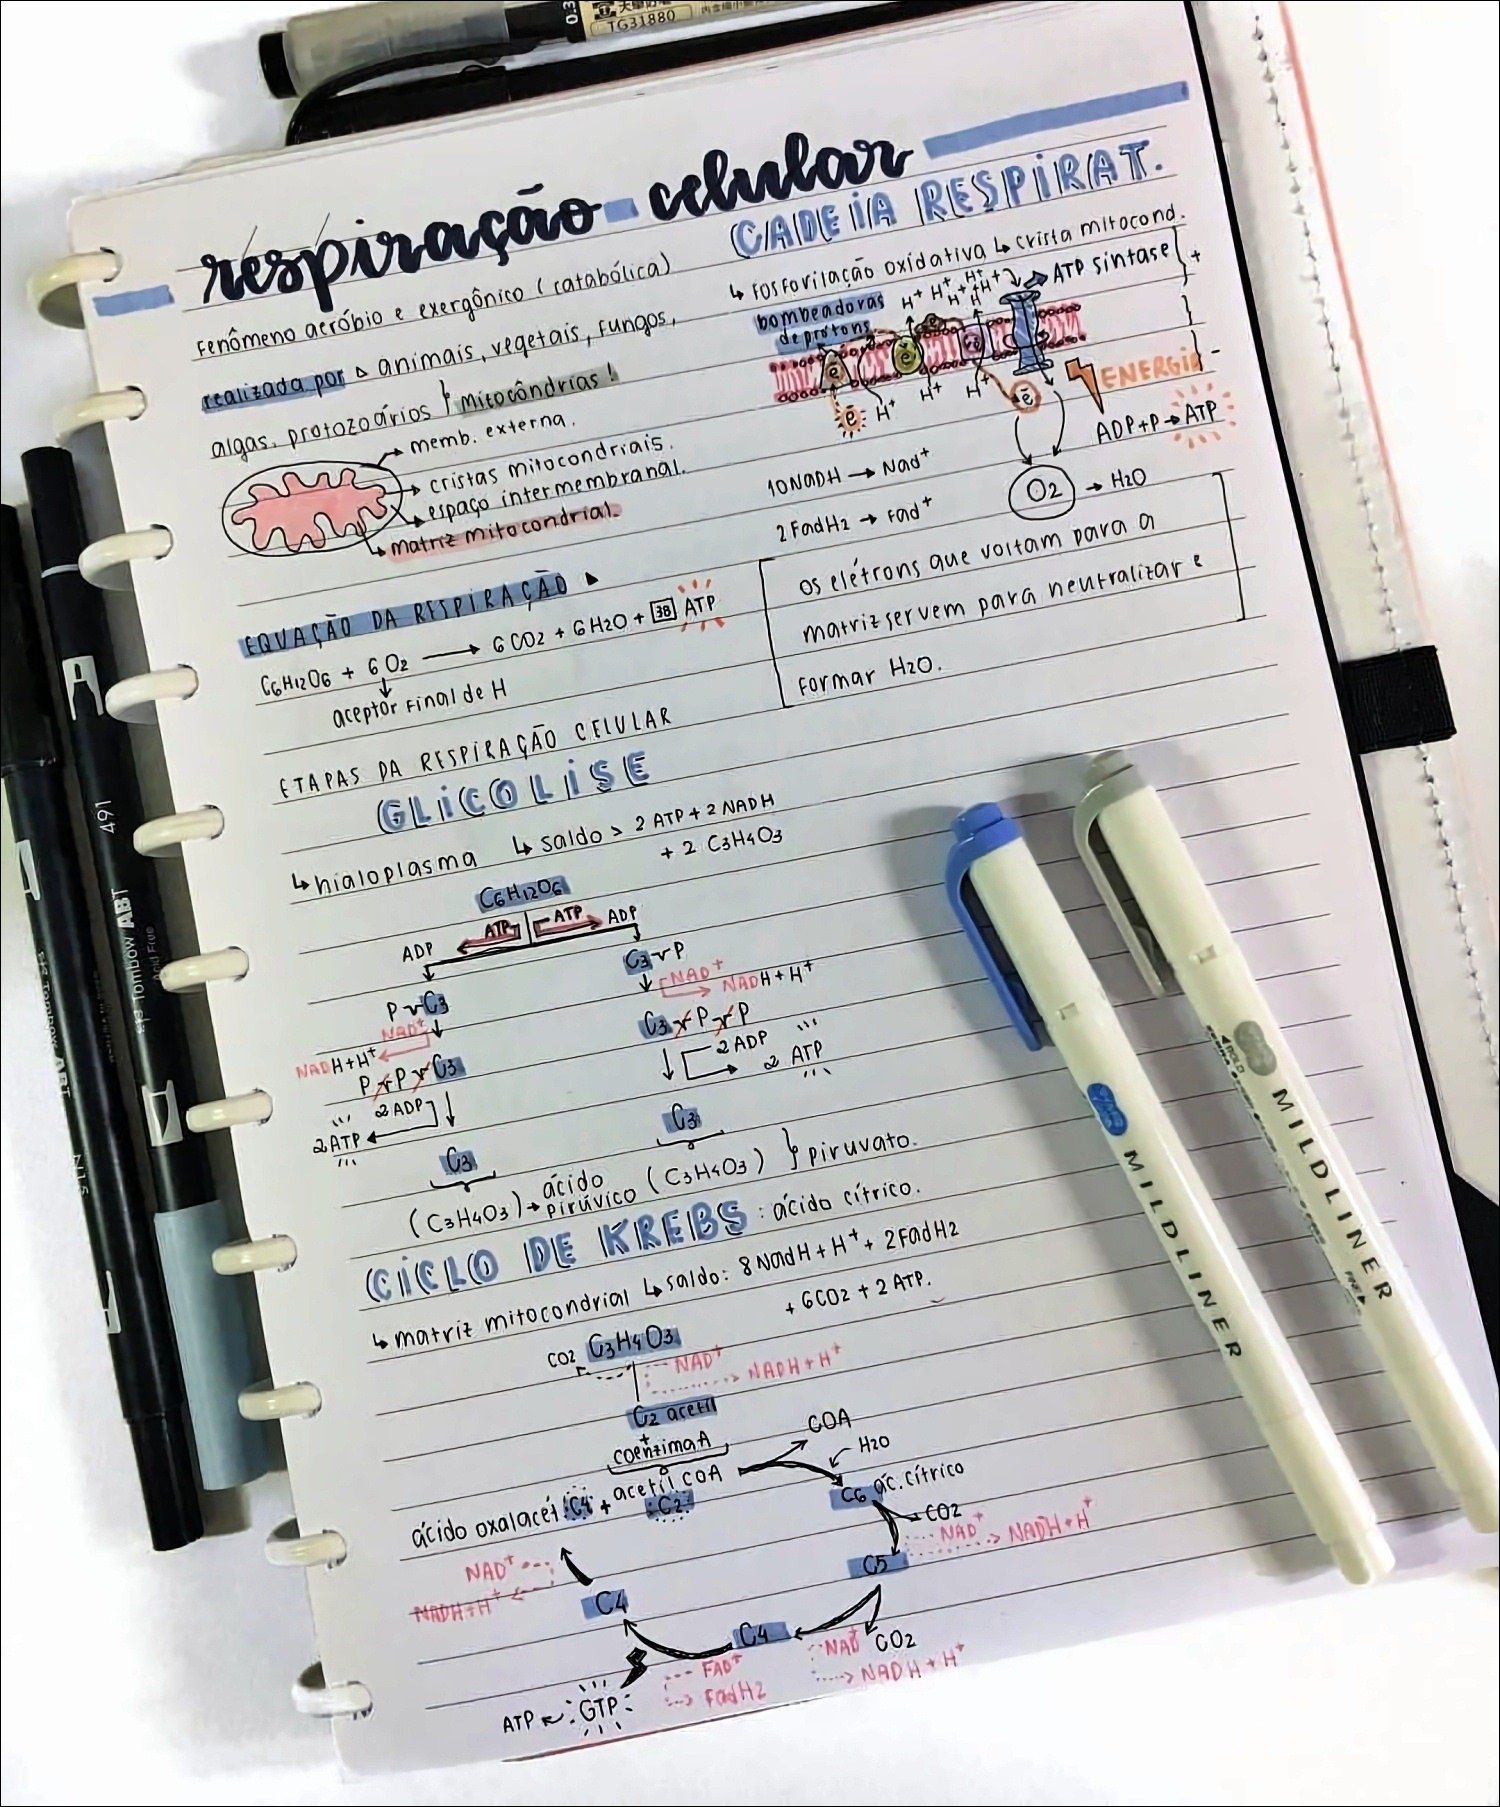 0.3
TG31880
respiração celular
Fenômeno aeróbio e exergônico (catabólica)
realizada por ▷ animais, vegetais, fungos,
algas, protozoários } mitocôndrias!
→ memb. externa.
→ cristas mitocondriais.
→ espaço intermembranal.
↳ matriz mitocondrial.
EQUAÇÃO DA RESPIRAÇÃO ▶
C6H12O6 + 6 O2 → 6 CO2 + 6 H2O + 38 ATP
↓
aceptor final de H
ETAPAS DA RESPIRAÇÃO CELULAR
GLICOLISE
↳ hialoplasma ↳ saldo > 2 ATP + 2 NADH
+ 2 C3H4O3
C6H12O6
ADP ATP ATP ADP
P~C3 C3~P
NAD+ NAD+
NADH+H+ NADH+H+
P~P~C3 C3~P~P
2 ADP 2 ADP
2 ATP 2 ATP
C3 C3
(C3H4O3) → ácido pirúvico (C3H4O3) } piruvato.
CICLO DE KREBS: ácido cítrico.
↳ matriz mitocondrial ↳ saldo: 8 NadH + H+ + 2FadH2
+ 6CO2 + 2 ATP.
CO2 C3H4O3
NAD+
NADH+H+
C2 acetil
+
coenzima A
COA
H2O
ácido oxalacét. C4 + acetil COA C2
C6 ác. cítrico
CO2
NAD+ NADH+H+
C5
CO2
NAD
NADH+H+
C4
FAD+
FadH2
GTP
ATP
C4
NAD+
NADH+H+
CADEIA RESPIRAT.
↳ Fosforilação oxidativa ↳ crista mitocond.
bombeadoras
de prótons
H+ H+ H+ H+ H+ H+
ATP sintase } +
e e e
e H+ H+ H+ e
ENERGIA -
ADP+P → ATP
10 NADH → Nad+
O2 → H2O
2 FadH2 → Fad+
os elétrons que voltam para a
matriz servem para neutralizar e
formar H2O.
491
ABT
Tombow ABT
N15
MILDLINER
MILDLINER